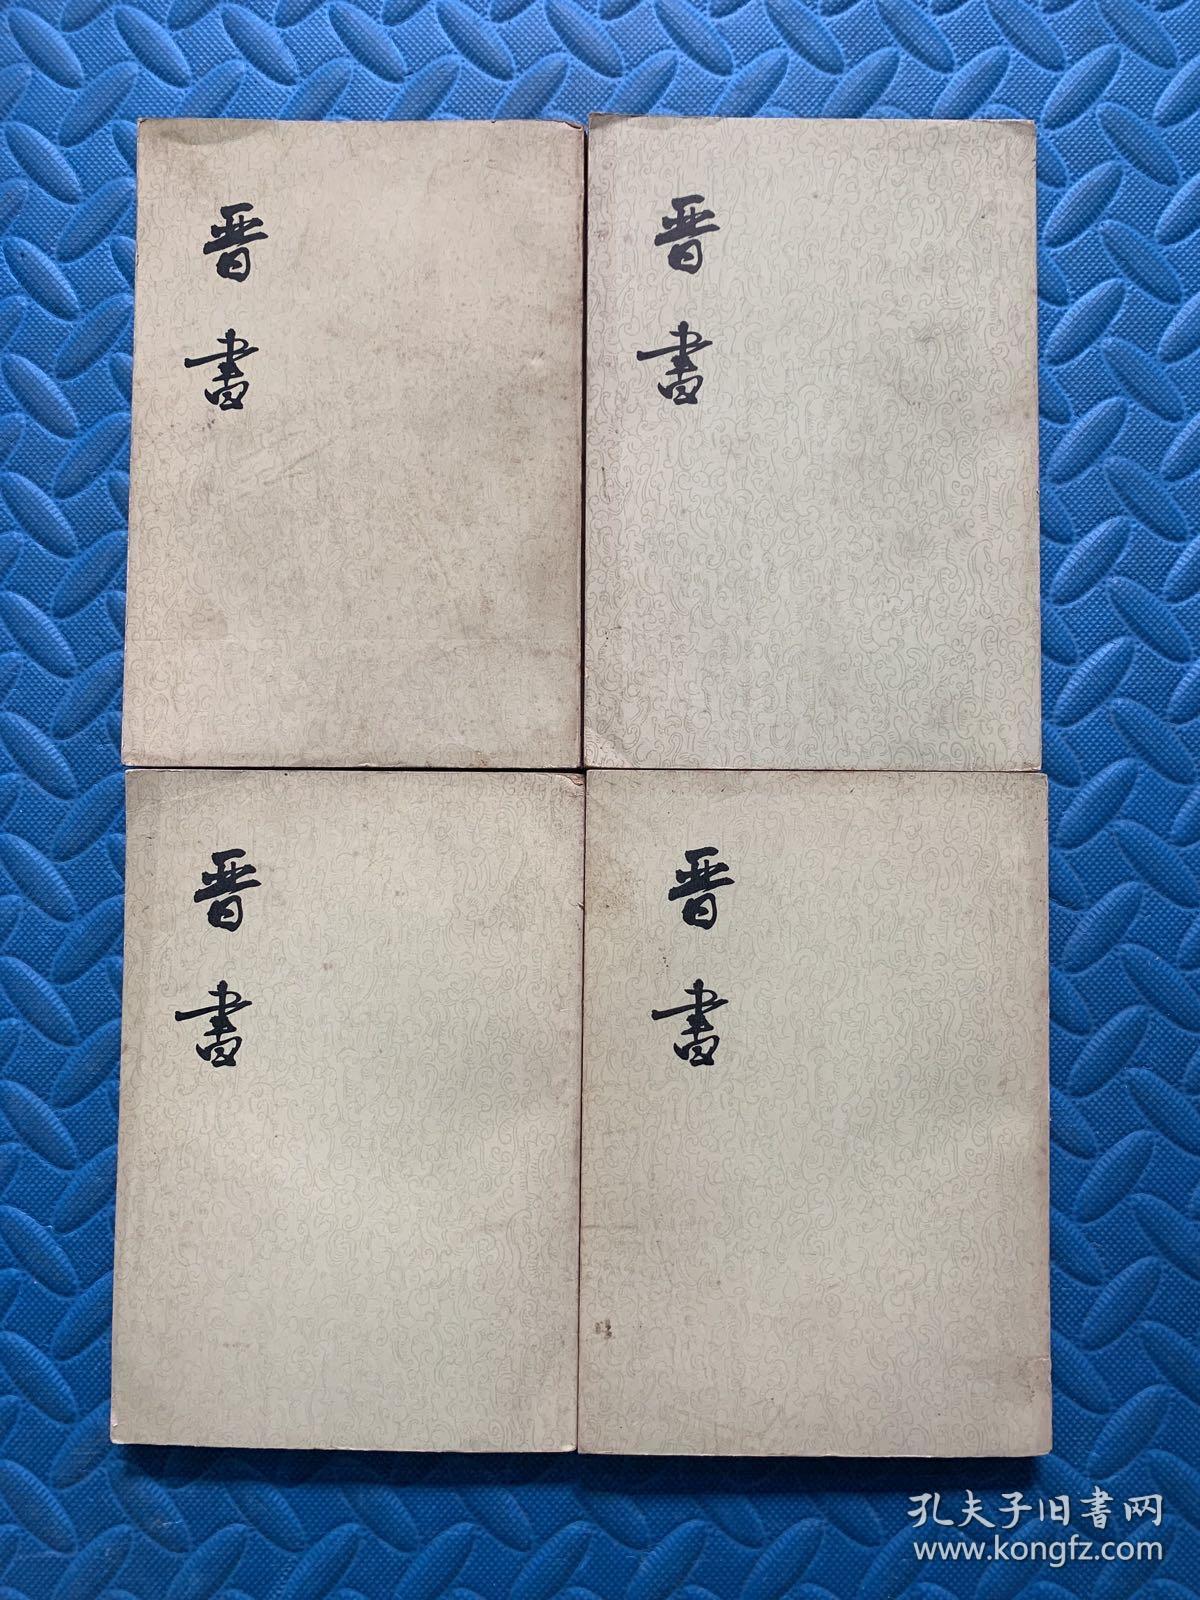 晋書
晋書
晋書
晋書
孔夫子旧書网
www.kongfz.com